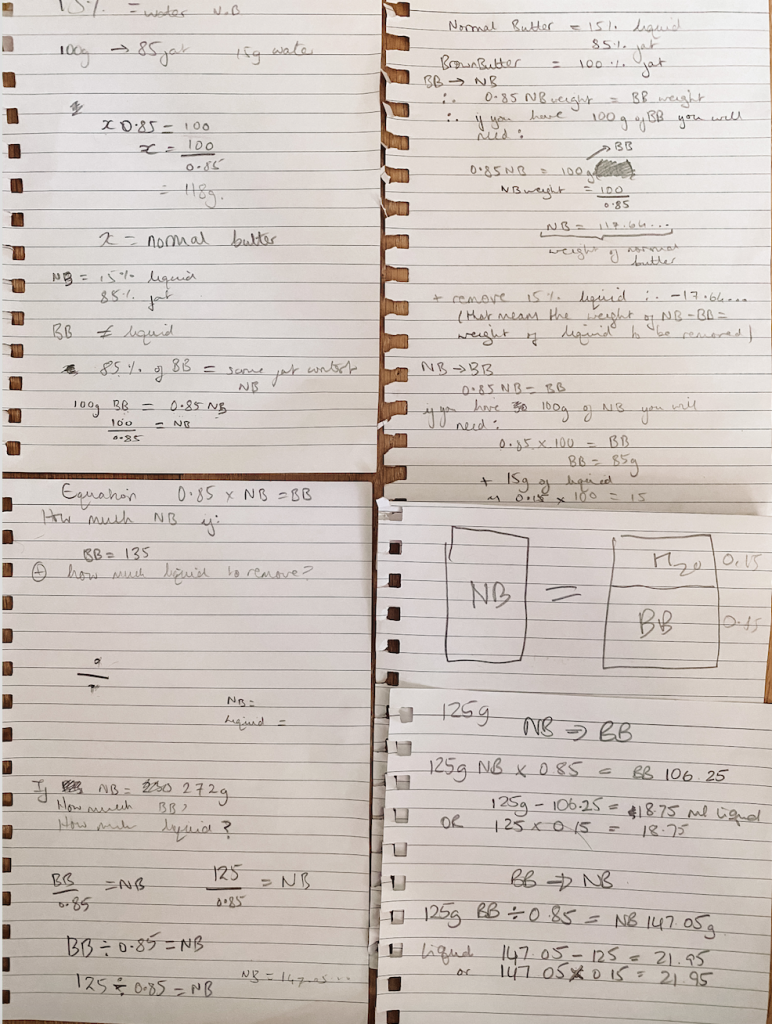 15% = water N.B
100g → 85 fat 15g water
x 0.85 = 100
x = 100
0.85
= 118g.
x = normal butter
NB = 15% liquid
85% fat
BB ≠ liquid
85% of BB = same fat content
NB
100g BB = 0.85 NB
100 = NB
0.85
Normal Butter = 15% liquid
85% fat
Brown Butter = 100% fat
BB → NB
∴ 0.85 NB weight = BB weight
∴ if you have 100g of BB you will
need:
→ BB
0.85 NB = 100g
NB weight = 100
0.85
NB = 117.64...
weight of normal
butter
+ remove 15% liquid ∴ -17.64...
(that means the weight of NB - BB =
weight of liquid to be removed)
NB → BB
0.85 NB = BB
if you have 100g of NB you will
need:
0.85 x 100 = BB
BB = 85g
+ 15g of liquid
0.15 x 100 = 15
Equation 0.85 x NB = BB
How much NB if:
BB = 135
+ how much liquid to remove?
NB =
liquid =
If NB = 272g
How much BB?
How much liquid?
BB = NB 125 = NB
0.85 0.85
BB ÷ 0.85 = NB
125 ÷ 0.85 = NB NB = 147.05...
NB = H20 0.15
BB 0.85
125g NB ⇒ BB
125g NB x 0.85 = BB 106.25
125g - 106.25 = 18.75 ml liquid
OR 125 x 0.15 = 18.75
BB ⇒ NB
125g BB ÷ 0.85 = NB 147.05g
Liquid 147.05 - 125 = 21.95
or 147.05 x 0.15 = 21.95